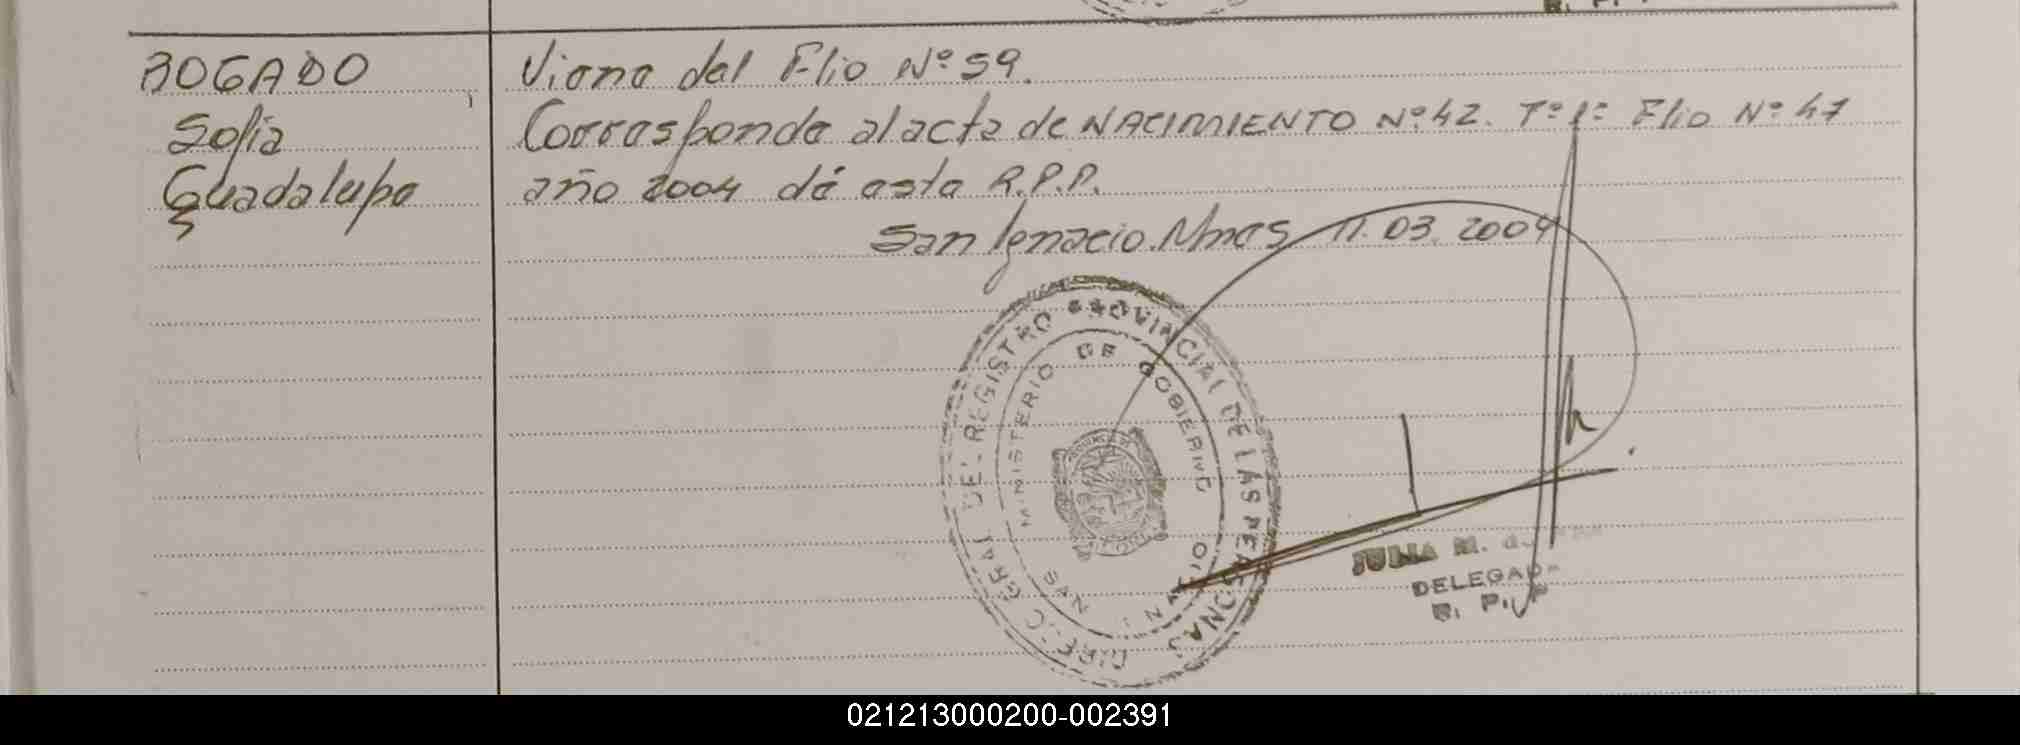 BOGADO
Sofia
Guadalupe
Viene del Flio Nº 59.
Corresponde al acta de NACIMIENTO Nº 42. Tº 1º Flio Nº 47
año 2004 dé esta R.P.P.
San Ignacio. Mnes 11.03.2004
DIREC GRAL DEL REGISTRO PROVINCIAL DE LAS PERSONAS
MINISTERIO DE GOBIERNO
JULIA M. d
DELEGADA
R. P. P
021213000200-002391